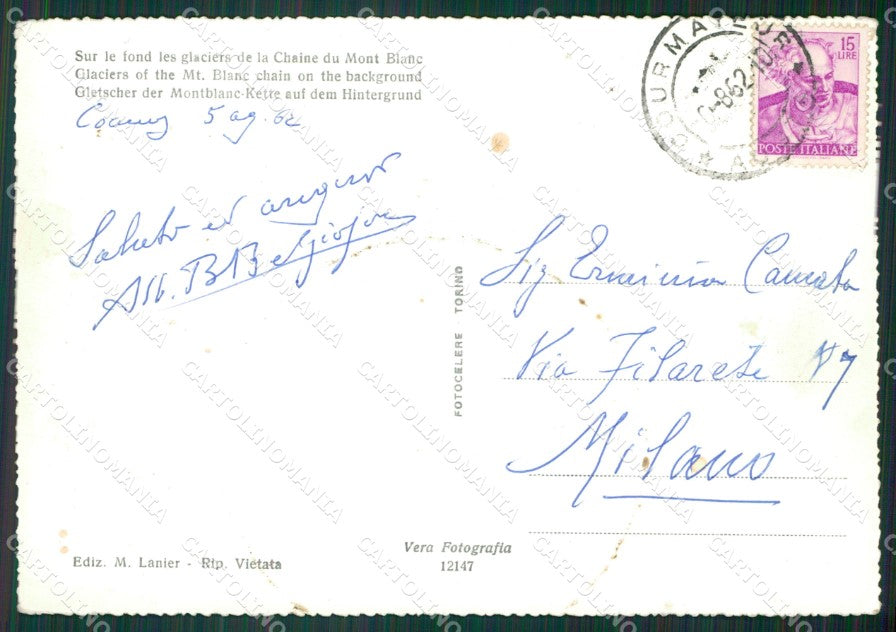 Sur le fond les glaciers de la Chaine du Mont Blanc
Glaciers of the Mt. Blanc chain on the background
Gletscher der Montblanc-Kette auf dem Hintergrund
5 ag. 62
Saluto ed auguro
COURMAYEUR
15
LIRE
POSTE ITALIANE
FOTOCELERE TORINO
Sig Erminia
Via Filarete
Milano
Ediz. M. Lanier - Rip. Vietata
Vera Fotografia
12147
CARTOLINOMANIA